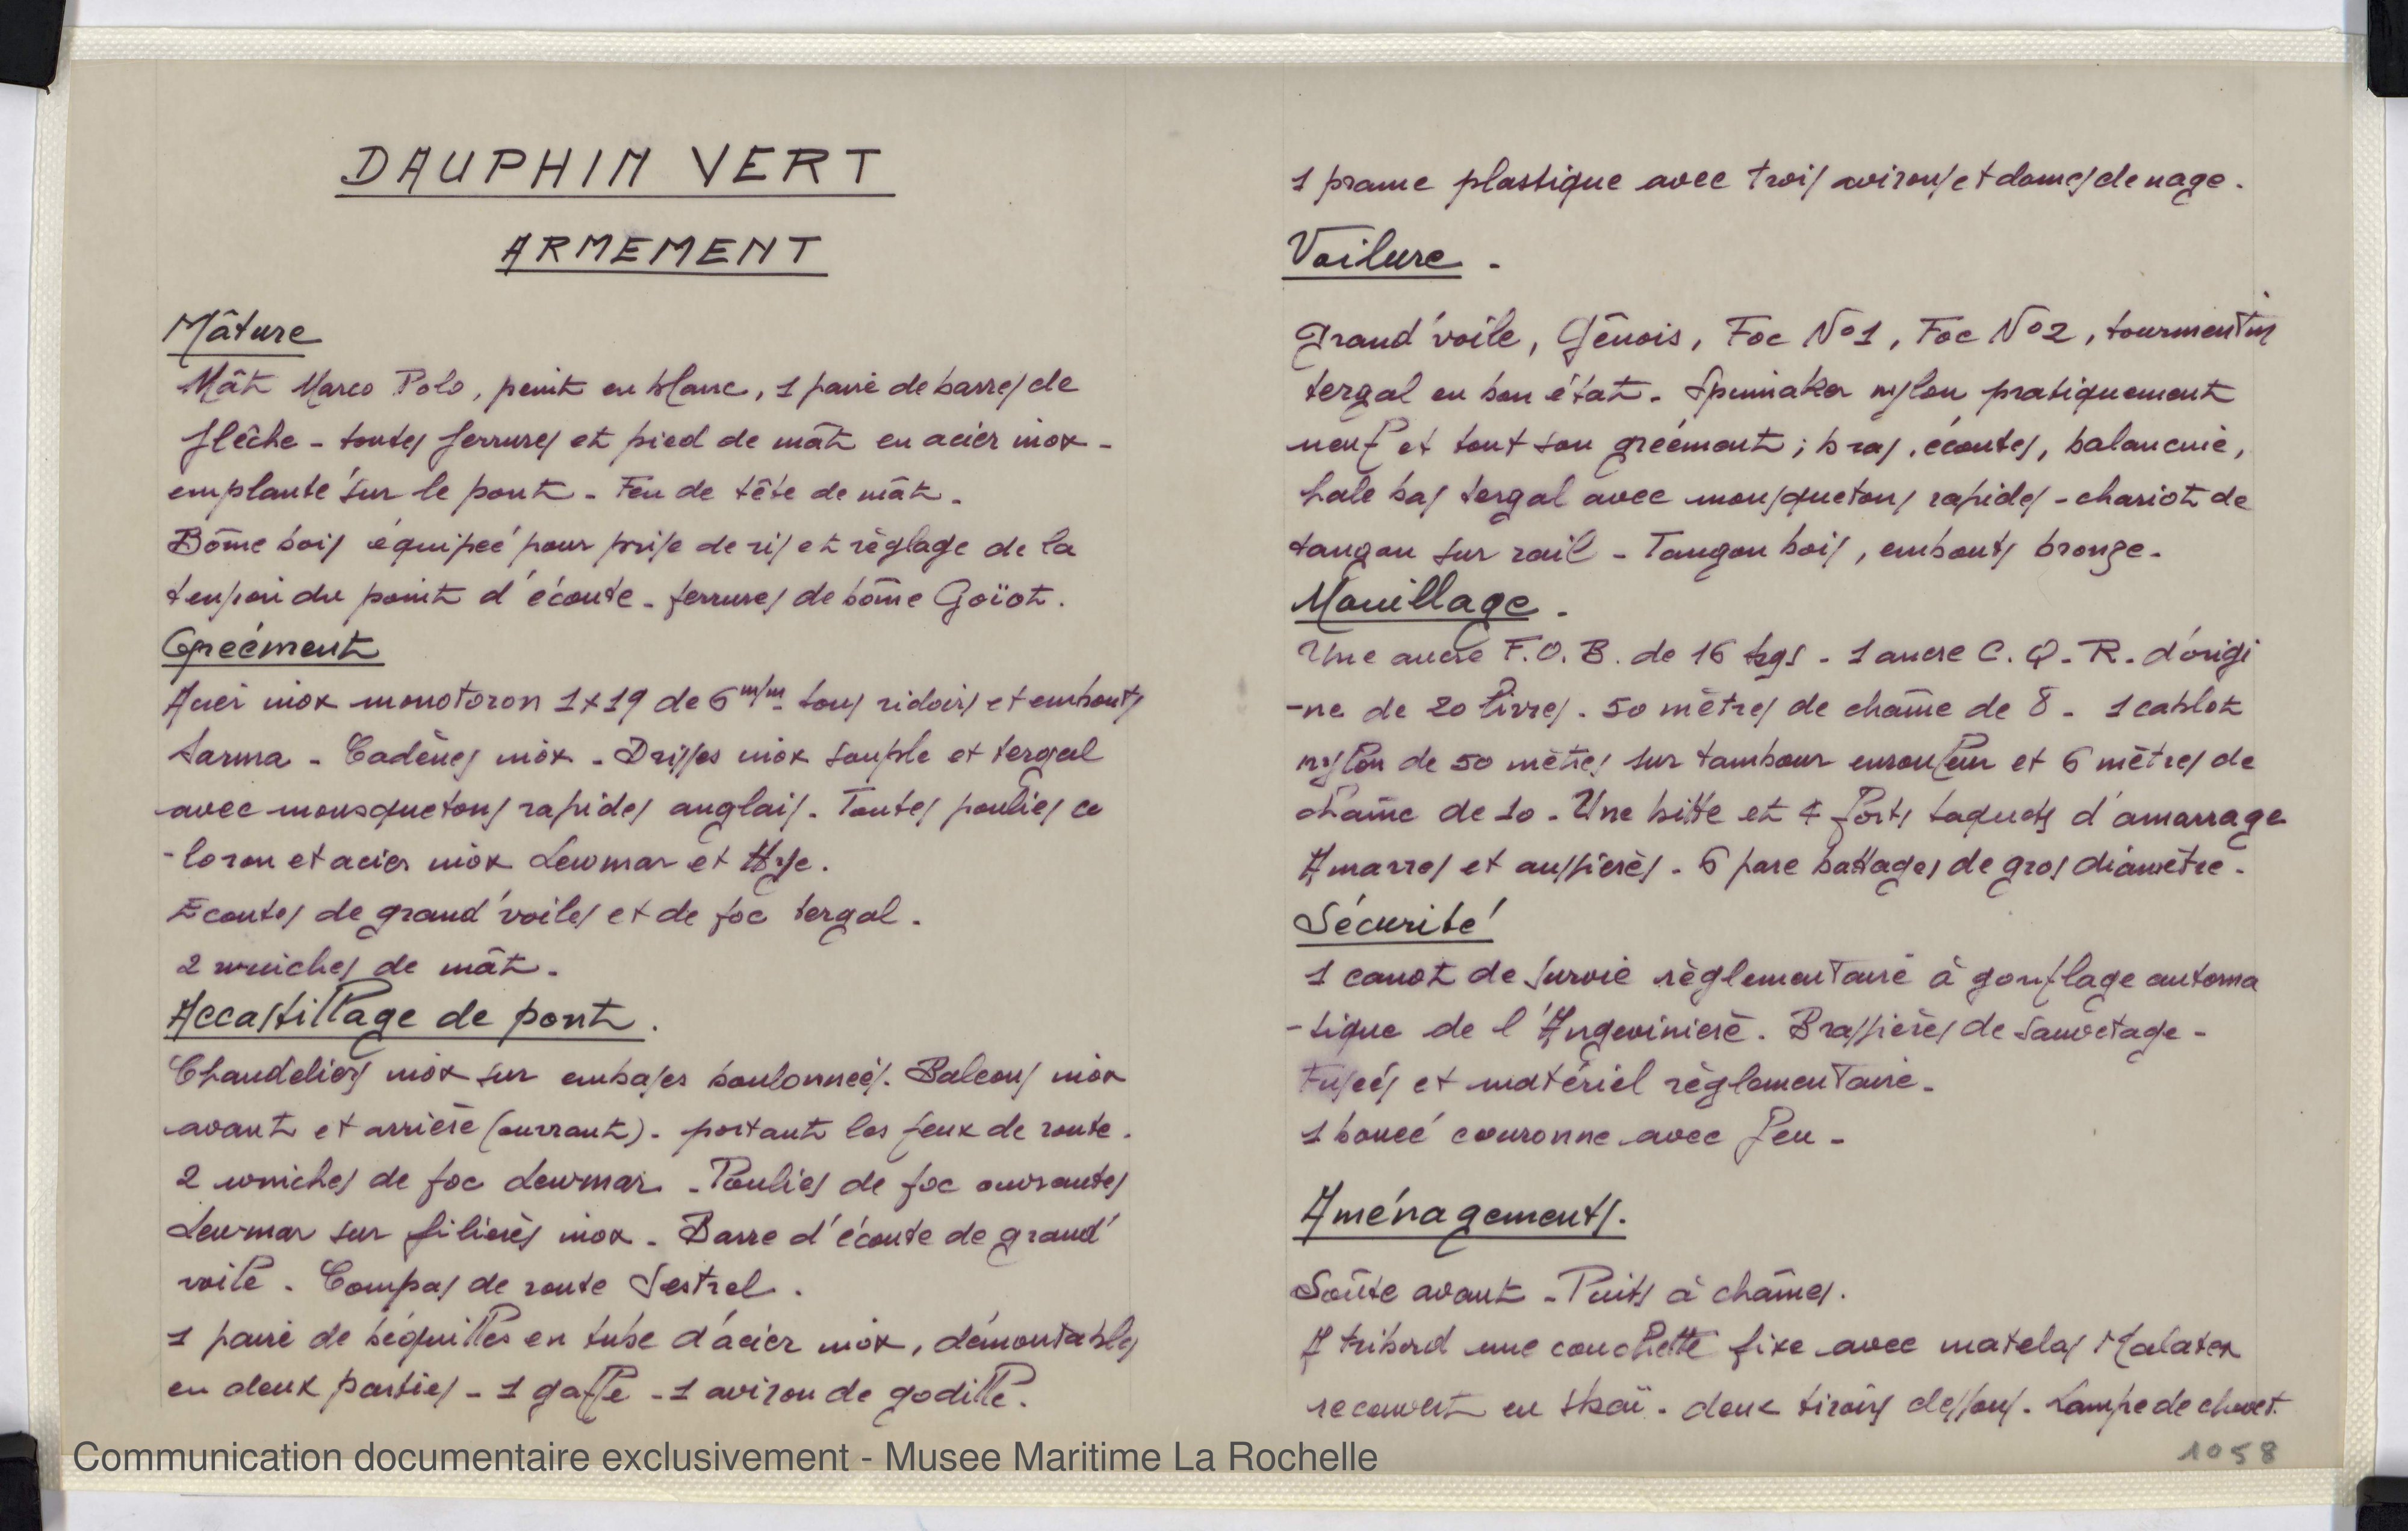 DAUPHIN VERT
ARMEMENT
Mâture
Mât Marco Polo, peint en blanc, 1 paire de barres de
flèche - toutes ferrures et pied de mât en acier inox -
emplanté sur le pont - Feu de tête de mât -
Bôme bois équipée pour prise de ris et règlage de la
tension du point d'écoute - ferrures de bôme Goïot.
Gréement
Acier inox monotoron 1x19 de 6 m/m - tous ridoirs et embouts
Sarma - Cadènes inox - Drisses inox souple et tergal
avec mousquetons rapides anglais - Toutes poulies ce
-loron et acier inox Lewmar et Hye.
Ecoutes de grand'voiles et de foc tergal.
2 winches de mât.
Accastillage de pont.
Chandeliers inox sur embases boulonnées. Balcons inox
avant et arrière (ouvrant) - portant les feux de route.
2 winches de foc Lewmar - Poulies de foc ouvrantes
Lewmar sur filières inox - Barre d'écoute de grand'
voile. Compas de route Sestrel.
1 paire de béquilles en tube d'acier inox, démontables
en deux parties - 1 gaffe - 1 aviron de godille.
1 prame plastique avec trois avirons et dames de nage.
Voilure -
Grand'voile, Gênois, Foc N°1, Foc N°2, tourmentin
tergal en bon état - Spinnaker nylon pratiquement
neuf et tout son gréement ; bras, écoutes, balancine,
hale bas tergal avec mousquetons rapides - chariot de
tangon sur rail - Tangon bois, embouts bronze.
Mouillage -
Une ancre F.O.B. de 16 kgs - 1 ancre C.Q.R. d'origi
-ne de 20 livres - 50 mètres de chaîne de 8 - 1 cablot
nylon de 50 mètres sur tambour enrouleur et 6 mètres de
chaîne de 10 - Une bitte et 4 forts taquets d'amarrage
Amarres et aussières - 6 pare battages de gros diamètre -
Sécurité
1 canot de survie règlementaire à gonflage automa
-tique de l'Angevinière. Brassières de sauvetage -
Fusées et matériel règlementaire -
1 bouée couronne avec feu -
Aménagements.
Soûte avant - Puits à chaînes.
A tribord une couchette fixe avec matelas Malatex
recouvert en skaï - deux tiroirs dessous - Lampe de chevet.
Communication documentaire exclusivement - Musee Maritime La Rochelle
1058